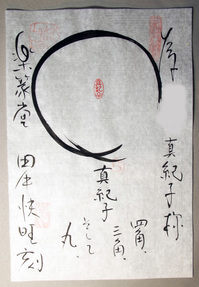 真紀子様
四角、
三角、
そして
丸、
真紀子
田中快旺刻
楽篆堂